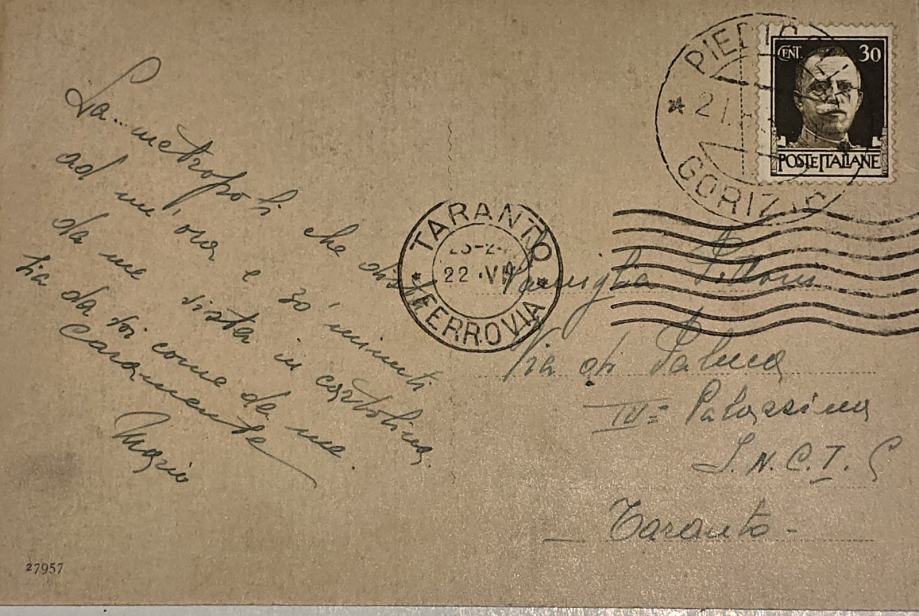 La metropoli che dista
ad un'ora e 30' minuti
da me vista in cartolina
sia da voi come da me.
Caramente
Mario
27957
TARANTO
22 · VII
FERROVIA
PIEDICOLLE
* 21.
GORIZIA
CENT. 30
POSTE ITALIANE
Famiglia
Via di Palma
IV= Palazzina
I.N.C.I.S
Taranto -